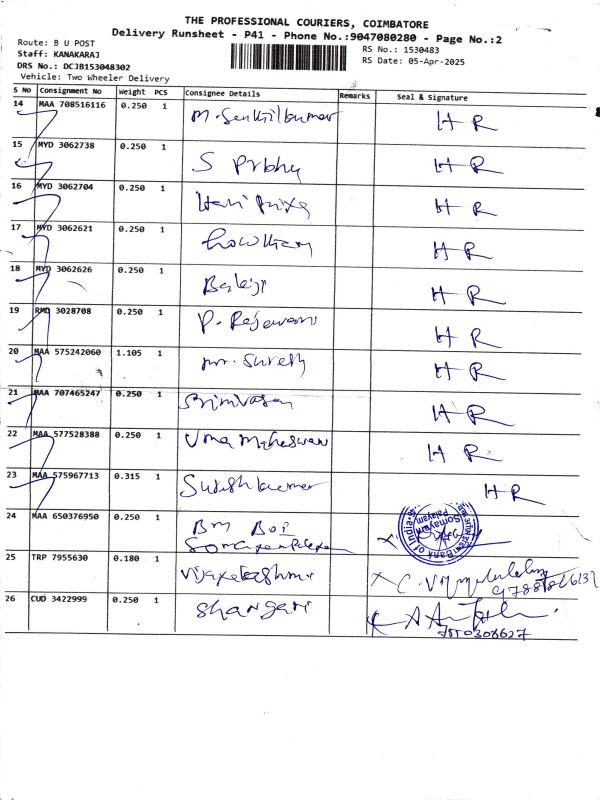 THE PROFESSIONAL COURIERS, COIMBATORE
Delivery Runsheet - P41 - Phone No.:9047080280 - Page No.:2
Route: B U POST
Staff: KANAKARAJ
DRS No.: DCJB153048302
Vehicle: Two Wheeler Delivery
RS No.: 1530483
RS Date: 05-Apr-2025
S No Consignment No Weight PCS Consignee Details Remarks Seal & Signature
14 MAA 708516116 0.250 1 M. Senthilkumar H R
15 MYD 3062738 0.250 1 S Prbhu H R
16 MYD 3062704 0.250 1 Hari H R
17 MYD 3062621 0.250 1 H R
18 MYD 3062626 0.250 1 Balaji H R
19 RMD 3028708 0.250 1 P. Rajeswari H R
20 MAA 575242060 1.105 1 mr. Suresh H R
21 MAA 707465247 0.250 1 Srinivasan H R
22 MAA 577528388 0.250 1 Uma Maheswari H R
23 MAA 575967713 0.315 1 Sureshkumar H R
24 MAA 650376950 0.250 1 BM BOI
Bank of India
Somayam
Palayam
25 TRP 7955630 0.180 1 Vijayalakshmi
26 CUD 3422999 0.250 1 Shangari